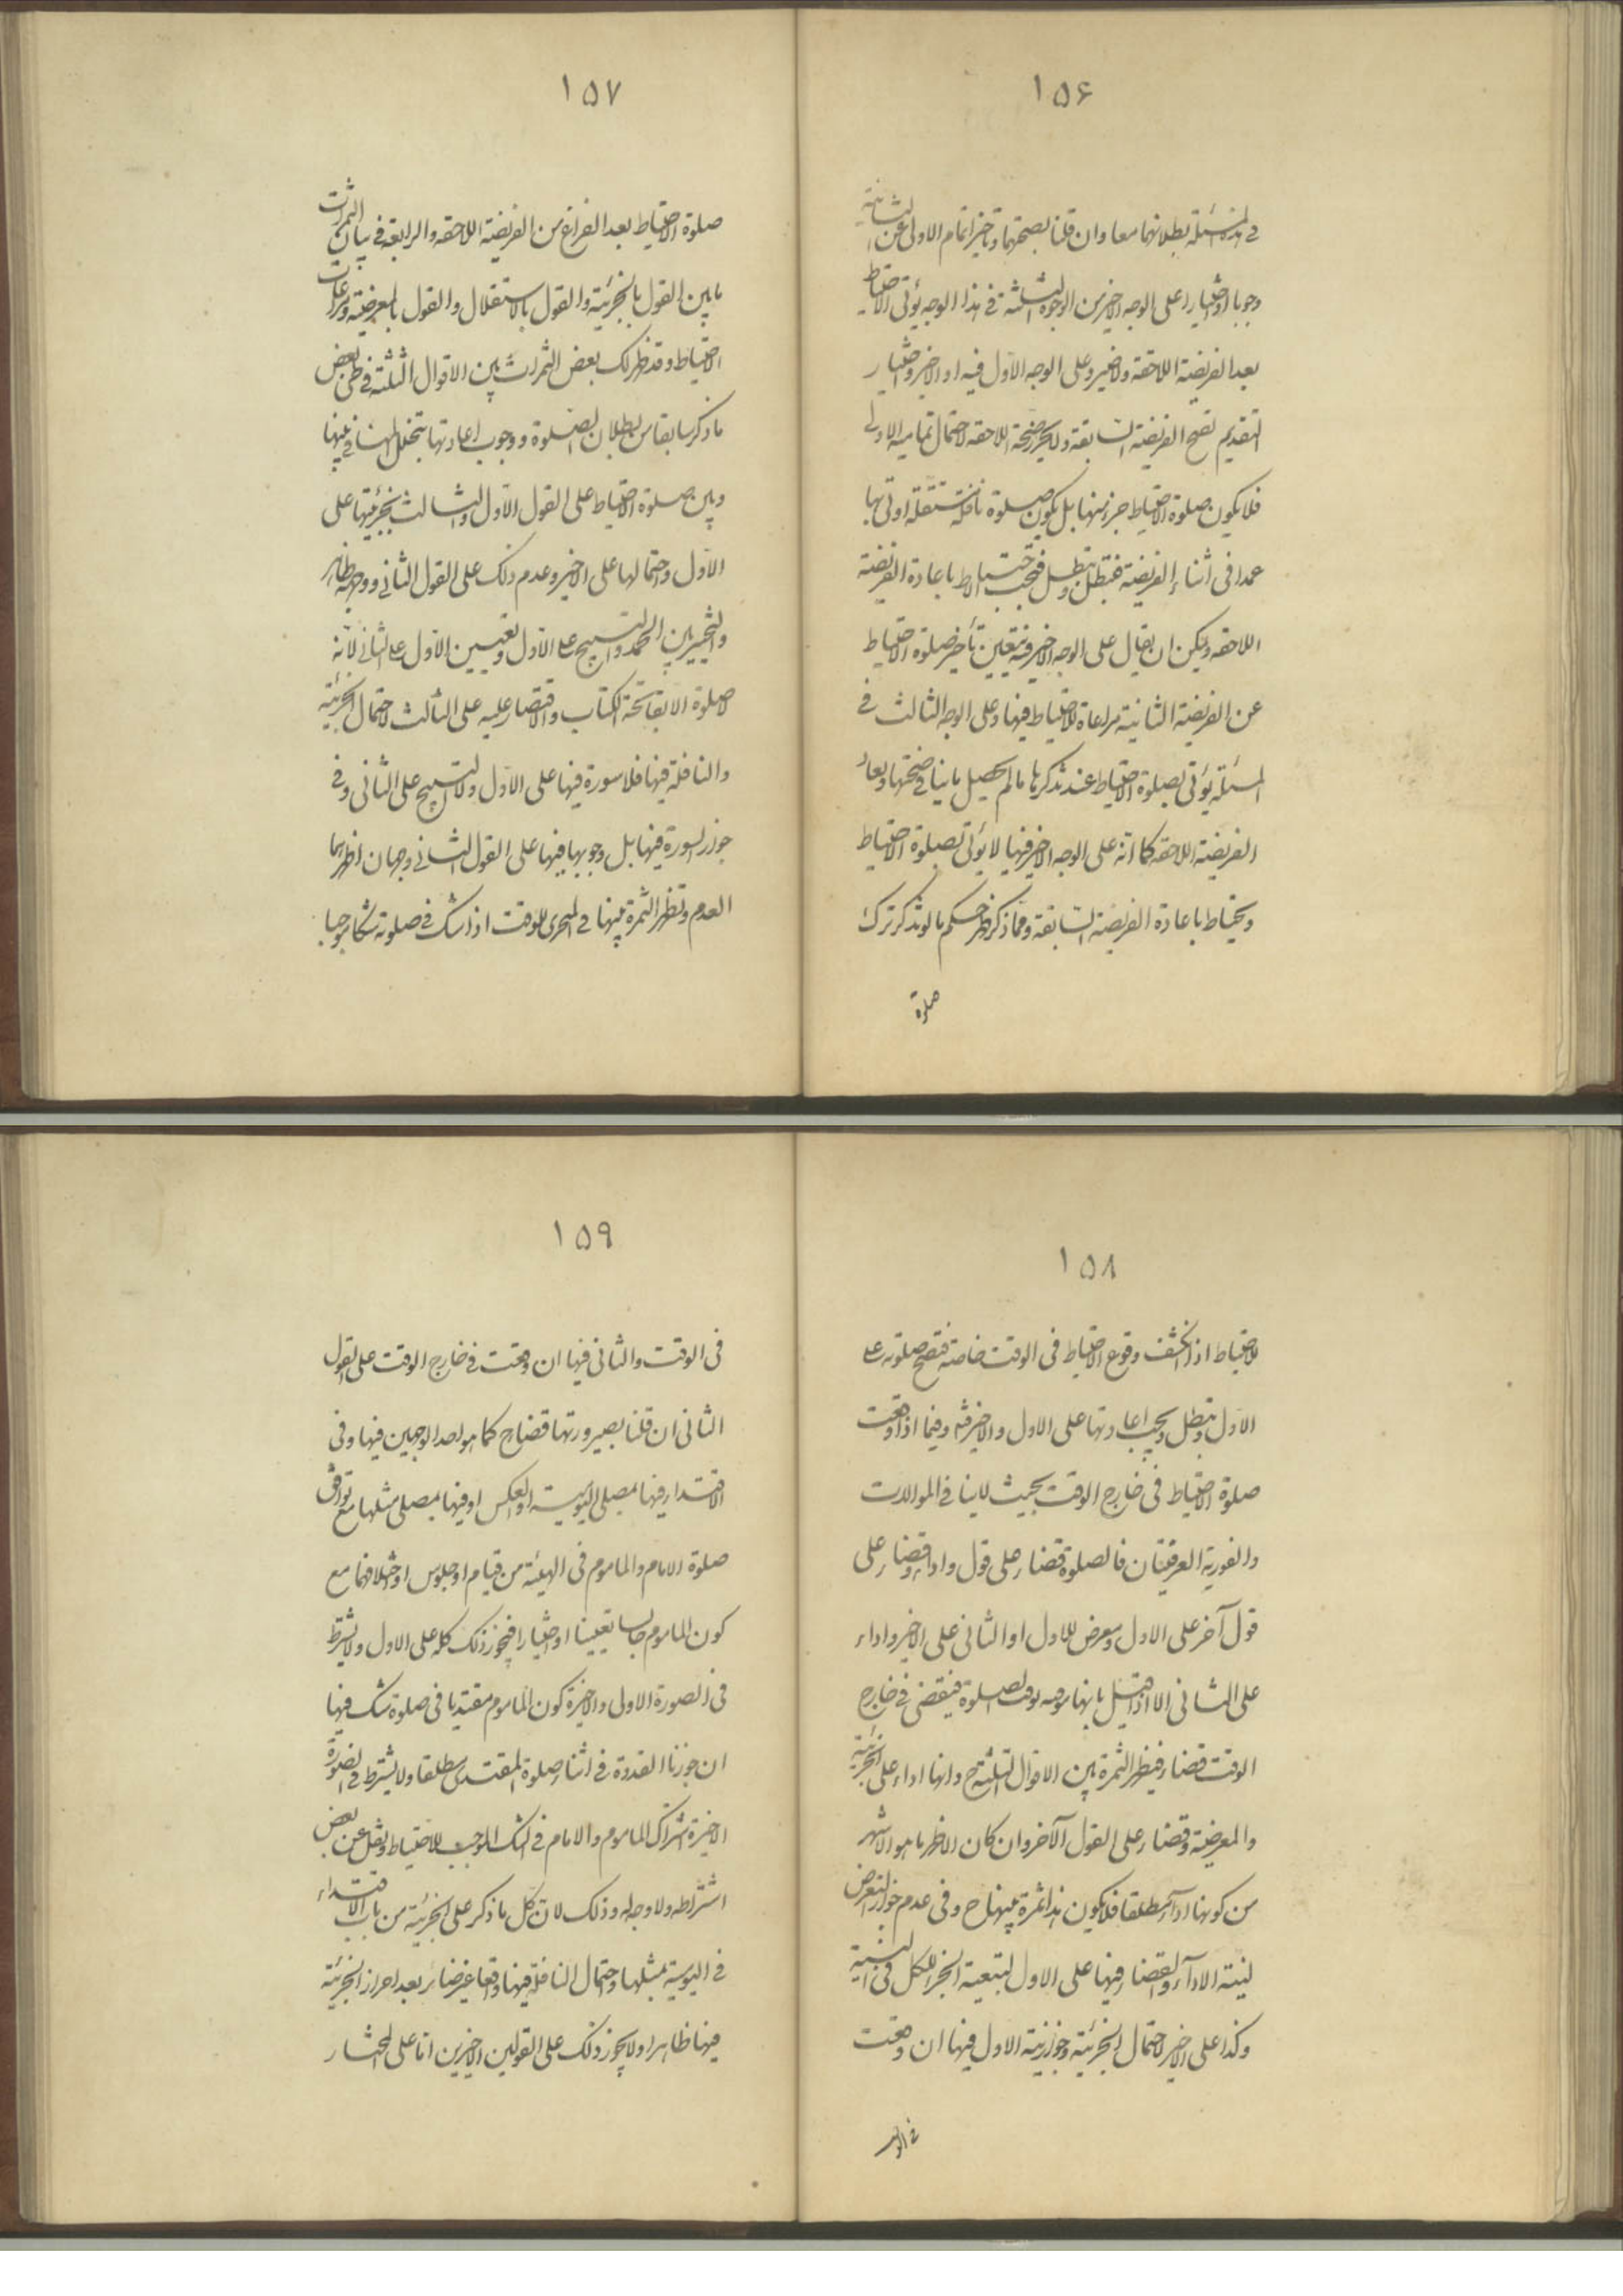 ١٥۶
في هذه المسئلة بطلانهما معا وان قلنا بصحتهما وتاخير اتمام الاولى عن الثانية
وجوبا او اختيارا على الوجه الاخير من الوجوه الثلثة في هذا الوجه يؤتى الاحتياط
بعد الفريضة اللاحقة ولاضير وعلى الوجه الاول فيه او الاخير واختيار
التقديم تصح الفريضة السابقة ولايحرز صحة اللاحقه لاحتمال تمامية الاولى
فلا يكون صلوة الاحتياط جزء منها بل يكون صلوة نافلة مستقلة اوتى بها
عمدا في اثناء الفريضة فتبطل وتبطل فيجب الاحتياط باعادة الفريضة
اللاحقه ويمكن ان يقال على الوجه الاخير فيه بتعين تأخير صلوة الاحتياط
عن الفريضة الثانية مراعاة للاحتياط فيها وعلى الوجه الثالث في
المسئلة يؤتى بصلوة الاحتياط عند تذكرها مالم يحصل ماينافي صحتها ويعاد
الفريضة اللاحقه كما انه على الوجه الاخير فيها لايؤتى بصلوة الاحتياط
ويحتاط باعادة الفريضة السابقة ومما ذكر ظهر حكم مالو تذكر ترك
صلوة
١٥٧
صلوة الاحتياط بعد الفراغ من الفريضة اللاحقه والرابعة في بيان الثمرات
مابين القول بالجزئية والقول بالاستقلال والقول بالمعرضية ومراعات
الاحتياط وقد ظهر لك بعض الثمرات بين الاقوال الثلثة في طي بعض
ماذكر سابقا من بطلان الصلوة ووجوب اعادتها بتخلل المنافي بينها
وبين صلوة الاحتياط على القول الاول والثالث بجزئيتها على
الاول واحتمالها على الاخير وعدم ذلك على القول الثاني ووجهه ظاهر
والتخيير بين الحمد والتسبيح على الاول وتعيين الاول على الثاني لانه
لاصلوة الا بفاتحة الكتاب والاقتصار عليه على الثالث لاحتمال الجزئية
والنافلة فيها فلاسورة فيها على الاول ولاتسبيح على الثاني وفي
جواز السورة فيها بل وجوبها فيها على القول الثاني وجهان اظهرهما
العدم وتظهر الثمرة بينها في المحرى للوقت اذا شك في صلوته شكا موجبا
١٥٨
للاحتياط اذا انكشف وقوع الاحتياط في الوقت خاصة فتصح صلوته على
الاول وتبطل ويجب اعادتها على الاول والاخير منه وفيما اذا وقعت
صلوة الاحتياط في خارج الوقت بحيث لاينافي الموالات
والفورية العرفيتان فالصلوة قضاء على قول واداء وقضاء على
قول آخر على الاول ومعرض للاول او الثاني على الاخير واداء
على الثاني الا اذا قيل بانها موجه بوقت الصلوة فينقضي في خارج
الوقت قضاء فيظهر الثمرة بين الاقوال الثلثة ح وانها اداء على الجزئية
والمعرضية وقضاء على القول الآخر وان كان الاظهر ماهو الاشهر
من كونها اداء مطلقا فلايكون هذا ثمرة بينها ح وفي عدم جواز التعرض
لنية الاداء والقضاء فيها على الاول لتبعية الجزء للكل في النية
وكذا على الاخير لاحتمال الجزئية وجواز نية الاول فيها ان وقعت
في الو
١٥٩
في الوقت والثاني فيها ان وقعت في خارج الوقت على القول
الثاني ان قلنا بصيرورتها قضاء ح كما هو احد الوجهين فيها وفي
الاقتداء فيها بمصلي اليومية او العكس او فيها بمصلي مثلها مع توافق
صلوة الامام والماموم في الهيئة من قيام او جلوس او اختلافها مع
كون الماموم جالسا تعيينا او اختيارا فيجوز ذلك كله على الاول ولايشترط
في الصورة الاولى والاخيرة كون الماموم مقتديا في صلوة شك فيها
ان جوزنا القدوة في اثناء صلوة المقتدى مطلقا ولايشترط في الصورة
الاخيرة اشتراك الماموم والامام في الشك الموجب للاحتياط ونقل عن بعض
اشتراطه ولاوجه له وذلك لان كل ماذكر على الجزئية من باب الاقتداء
في اليومية بمثلها واحتمال النافلة فيها واقعا غير ضائر بعد احراز الجزئية
فيها ظاهرا ولايجوز ذلك على القولين الاخيرين اما على المختار